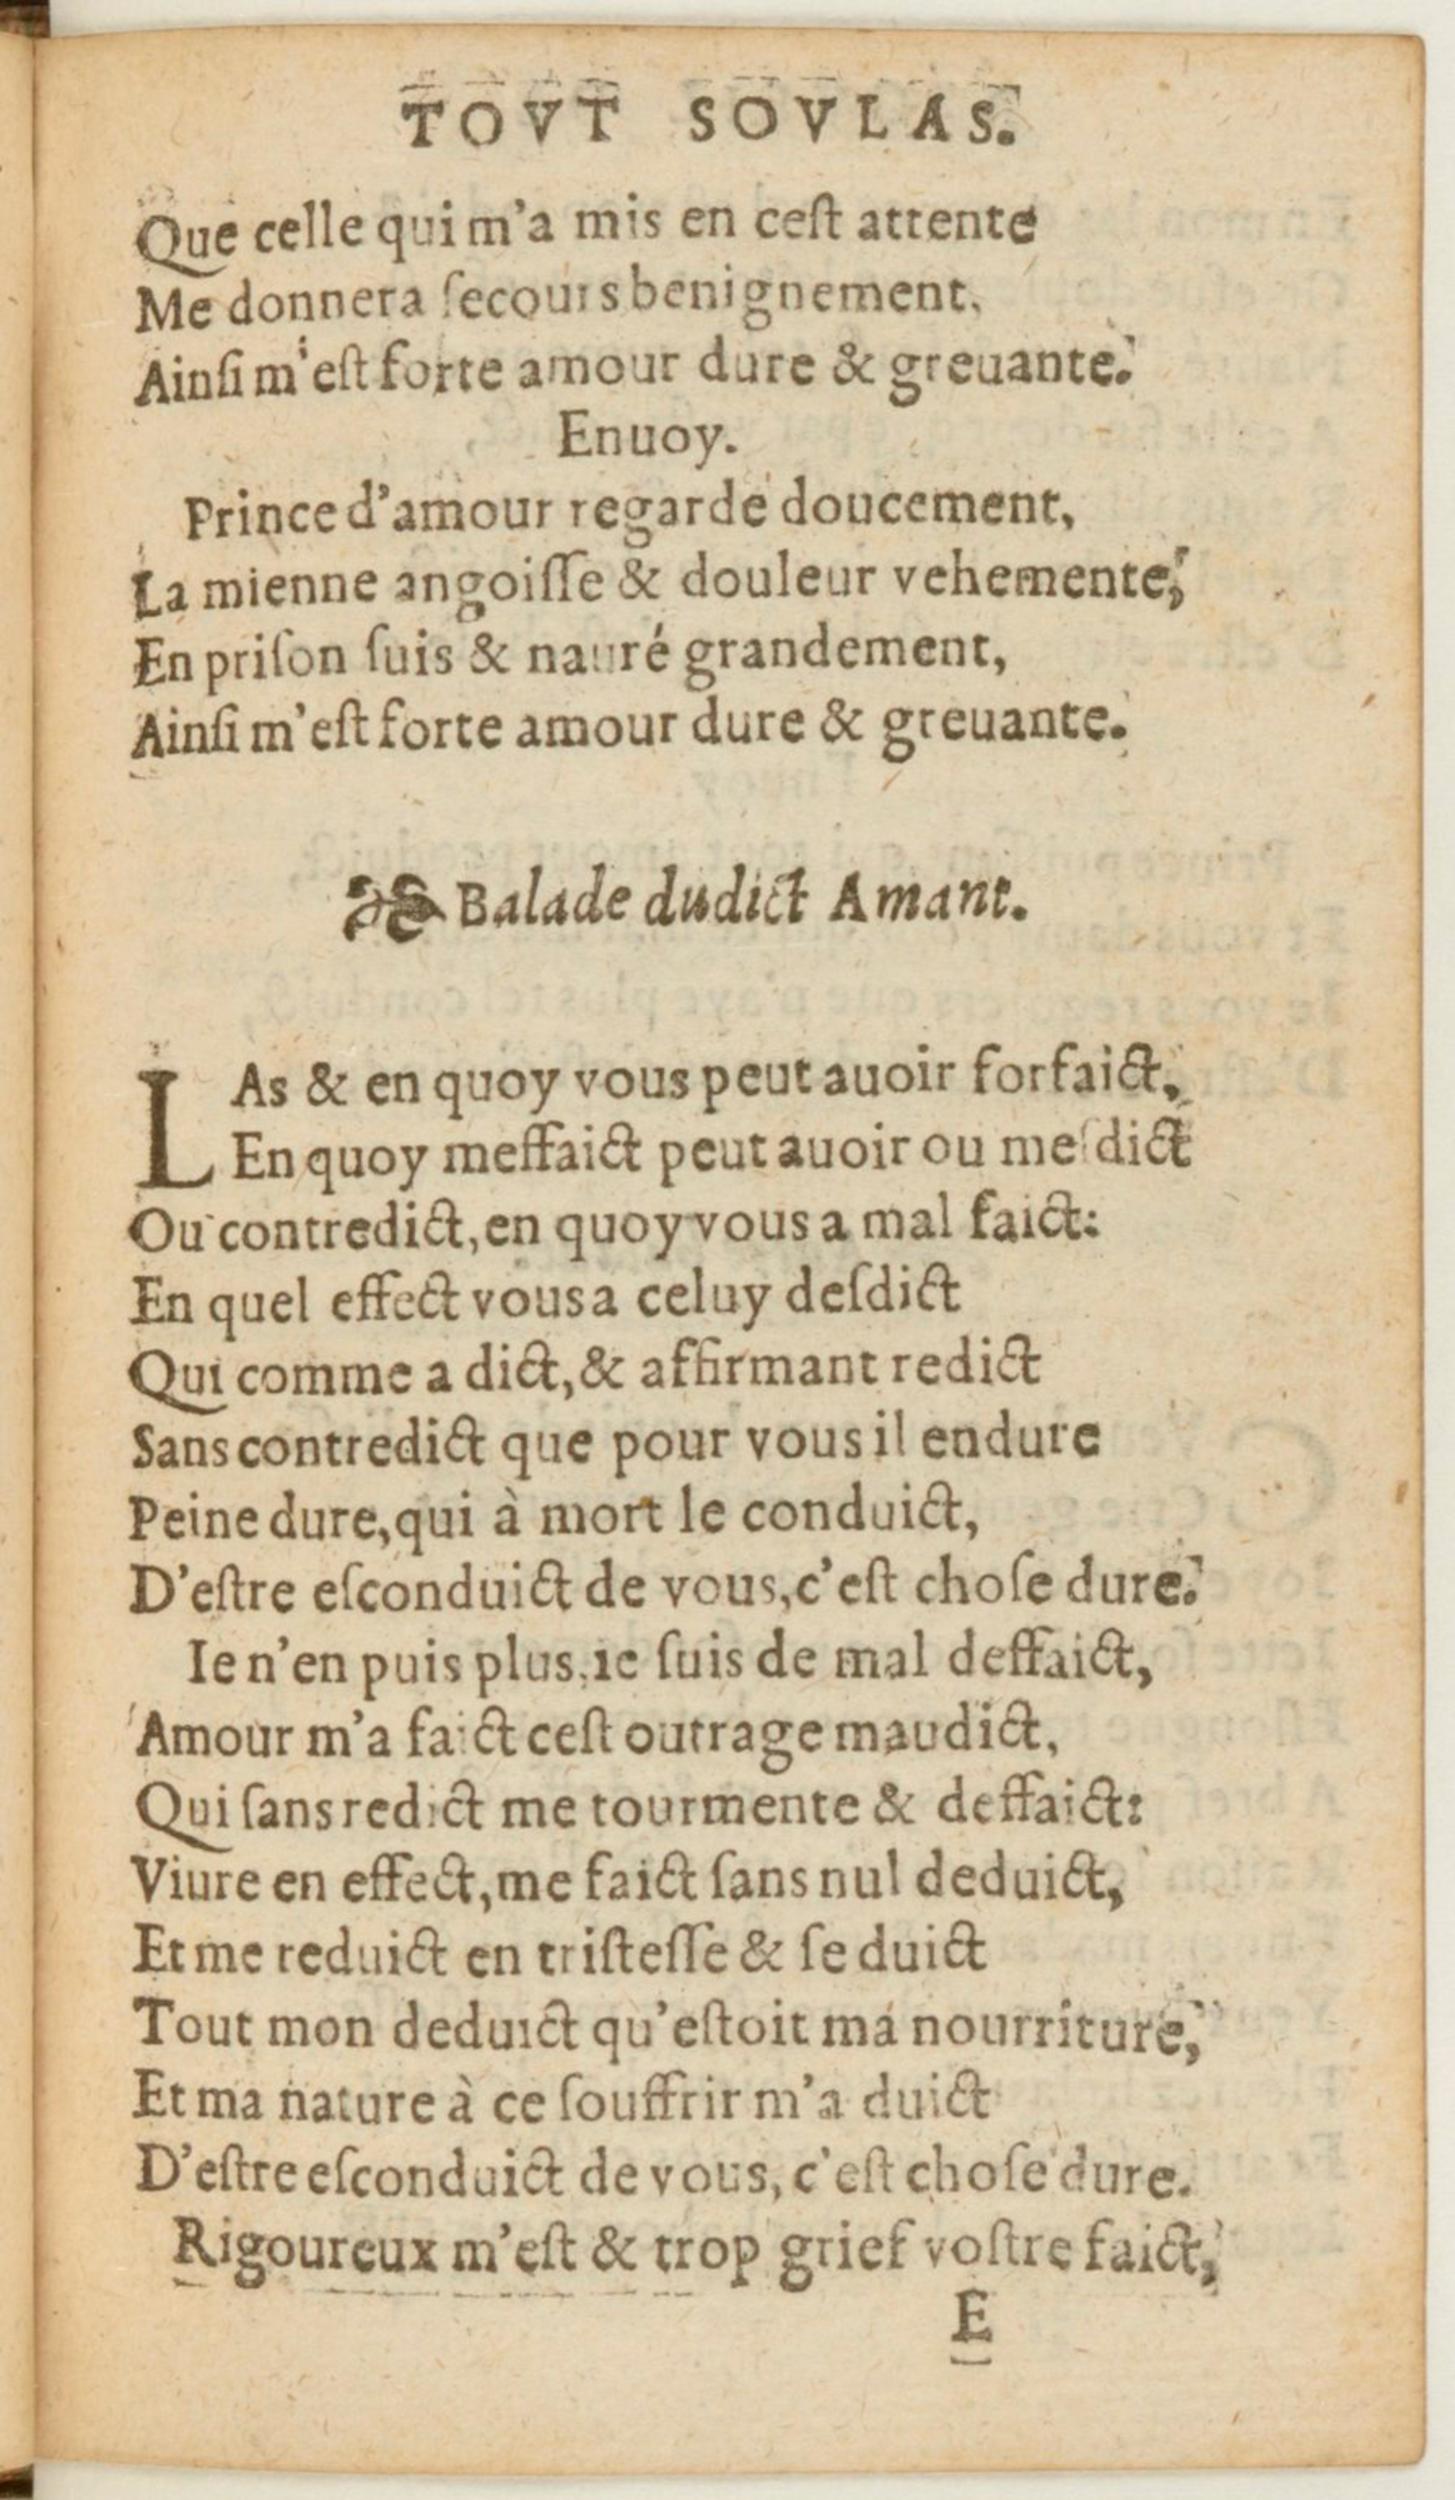 TOVT SOVLAS.
Que celle qui m'a mis en ceſt attente
Me donnera ſecours benignement.
Ainſi m'eſt forte amour dure & greuante.
Enuoy.
Prince d'amour regarde doucement,
La mienne angoiſſe & douleur vehemente,
En priſon ſuis & nauré grandement,
Ainſi m'eſt forte amour dure & greuante.
Balade dudict Amant.
LAs & en quoy vous peut auoir forfaict,
En quoy meffaict peut auoir ou meſdict
Ou contredict, en quoy vous a mal faict:
En quel effect vous a celuy deſdict
Qui comme a dict, & affirmant redict
Sans contredict que pour vous il endure
Peine dure, qui à mort le conduict,
D'eſtre eſconduict de vous, c'eſt choſe dure.
Ie n'en puis plus, ie ſuis de mal deffaict,
Amour m'a faict ceſt outrage maudict,
Qui ſans redict me tourmente & deffaict:
Viure en effect, me faict ſans nul deduict,
Et me reduict en triſteſſe & ſe duict
Tout mon deduict qu'eſtoit ma nourriture,
Et ma nature à ce ſouffrir m'a duict
D'eſtre eſconduict de vous, c'eſt choſe dure.
Rigoureux m'eſt & trop grief voſtre faict,
E